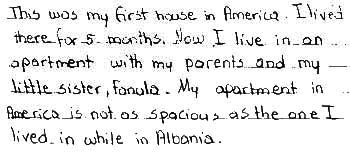 This was my first house in America. I lived
there for 5 months. Now I live in an
apartment with my parents and my
little sister, Fanula. My apartment in
America is not as spacious as the one I
lived in while in Albania.